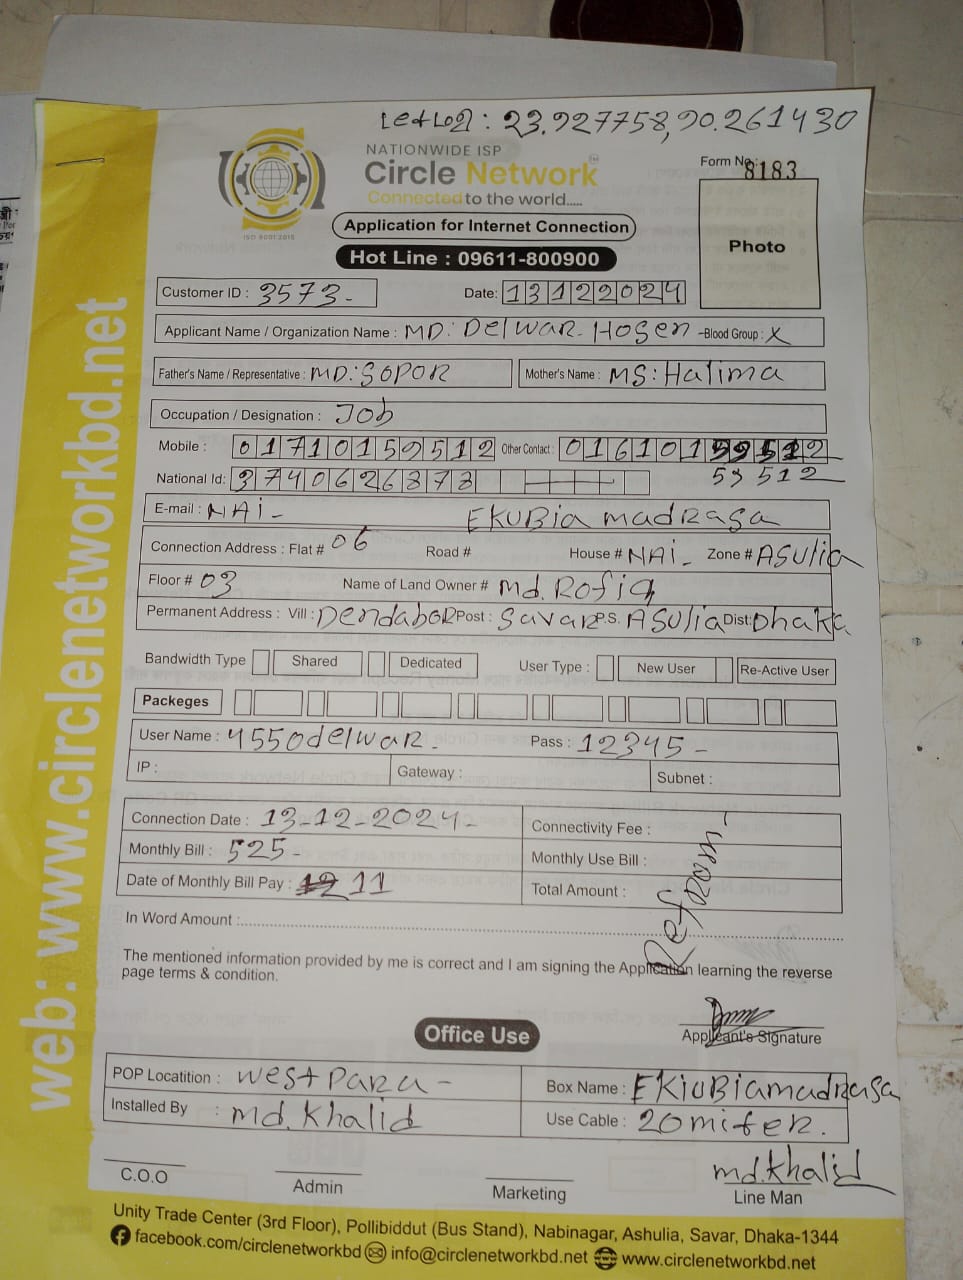 Let Log : 23.927758, 90.261430
NATIONWIDE ISP
Circle Network
Connected to the world.....
ISO 9001:2015
Form No: 8183
Application for Internet Connection
Photo
Hot Line : 09611-800900
Customer ID : 3573-
Date: 13122024
Applicant Name / Organization Name : MD: Delwar Hosen - Blood Group : X
Father's Name / Representative : MD: SOPOR
Mother's Name : MS: Halima
Occupation / Designation : Job
Mobile : 01710159512 Other Contact : 01610159512
59 512
National Id: 3740626873
E-mail : NAi-
EKUBia madRasa
Connection Address : Flat # 06 Road # House # NAi- Zone # ASulia
Floor # 03 Name of Land Owner # md. Rofiq
Permanent Address : Vill : Dendabor Post : Savar P.S. ASulia Dist: Dhaka
Bandwidth Type Shared Dedicated User Type : New User Re-Active User
Packeges
User Name : 4550delwar- Pass : 12345-
IP : Gateway : Subnet :
Connection Date : 13-12-2024- Connectivity Fee :
Monthly Bill : 525- Monthly Use Bill :
Date of Monthly Bill Pay : 11 Total Amount :
In Word Amount :
The mentioned information provided by me is correct and I am signing the Application learning the reverse
page terms & condition.
Applicant's Signature
Office Use
POP Locatition : west para - Box Name : EKiuBiamadRasa
Installed By : md. Khalid Use Cable : 20 miter.
md.khalid
C.O.O Admin Marketing Line Man
Unity Trade Center (3rd Floor), Pollibiddut (Bus Stand), Nabinagar, Ashulia, Savar, Dhaka-1344
facebook.com/circlenetworkbd info@circlenetworkbd.net www.circlenetworkbd.net
web: www.circlenetworkbd.net